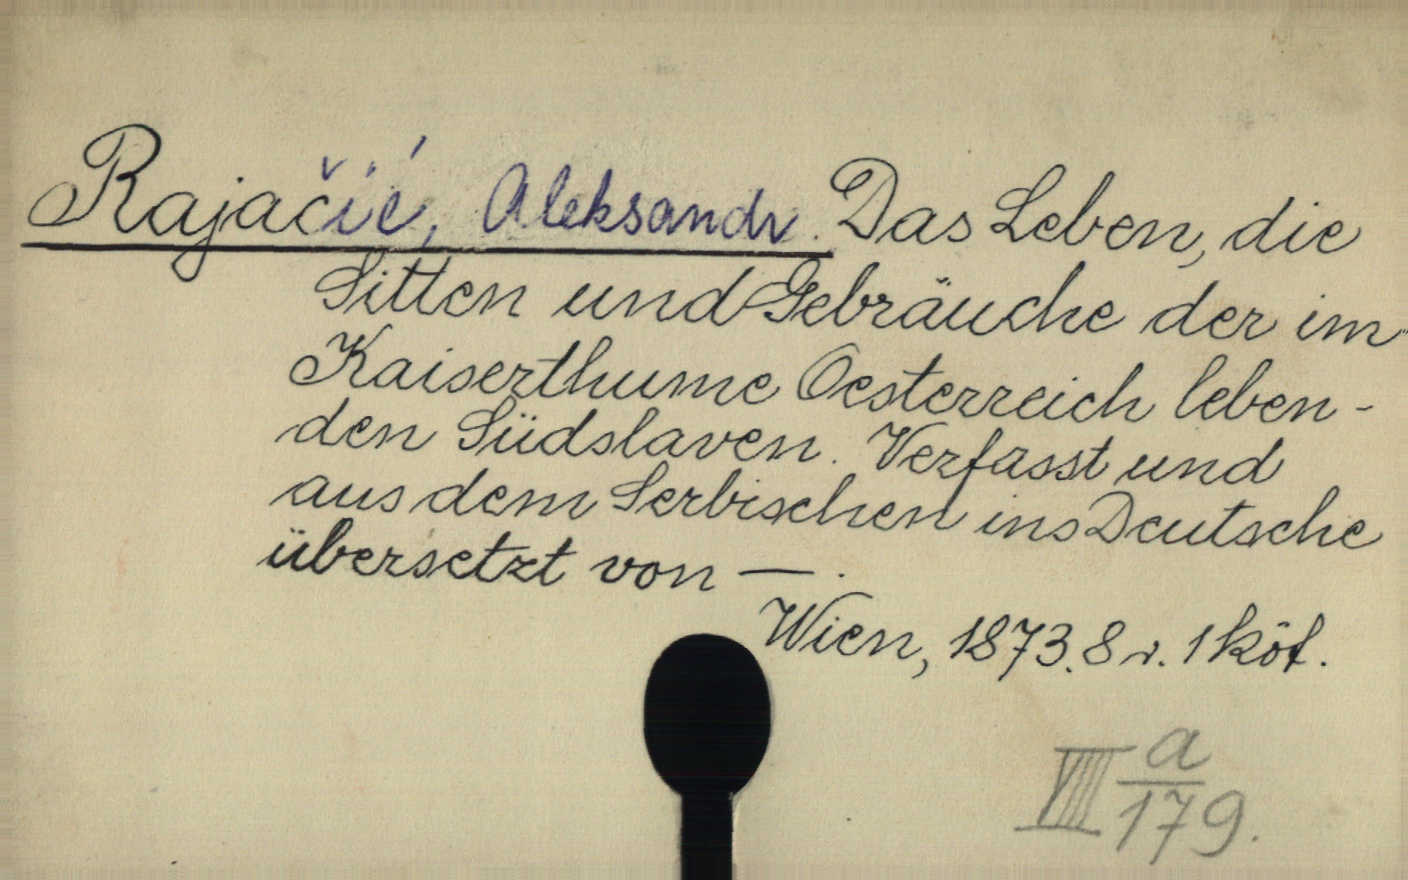 Rajačić, Aleksandr. Das Leben, die
Sitten und Gebräuche der im
Kaiserthume Oesterreich leben-
den Südslaven. Verfasst und
aus dem Serbischen ins Deutsche
übersetzt von —.
Wien, 1873. 8 r. 1 köt.
VIII a/179.